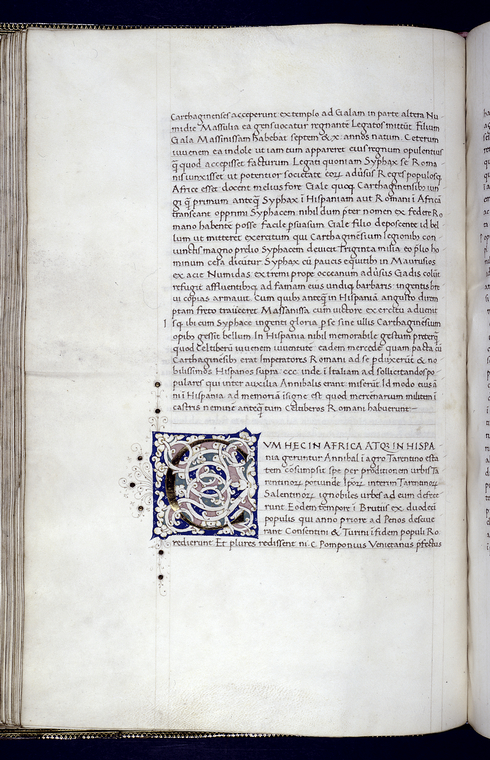 Carthaginenses acceperunt extemplo ad Galam in parte altera Nu
midie Massulia ea gens uocatur regnante Legatos mittūt Filium
Gala Massinissam habebat septem & x annos natum. Ceterum
iuuenem ea indole ut iam tum appareret eius regnum opulentius
q̄ quod accepisset facturum Legati quoniam Syphax se Roma
nis iunxisset ut potentior societate eoꝝ aduersus Reges populosq
Africe esset docent melius fore Gale quoq Carthaginēsib iun
gi q̄ primum anteq̄ Syphax ī Hispaniam aut Romani ī Africā
transeant opprimi Syphacem nihil dum preter nomen ex federe Ro
mano habentē posse facile psuasum Gale filio deposcente id bel
lum ut mitteret exercitum qui Carthaginēsium legionib con
iunctis magno prelio Syphacem deuicit Triginta milia eo plio ho
minum cesa dicūtur Syphax cū paucis equitib in Maurusios
ex acie Numidas extremi prope occeanum aduersus Gadis colūt
refugit affluentibusq ad famam eius undiq barbaris ingentis bre
ui copias armauit Cum quib anteq̄ in Hispaniā angusto direm
ptam freto traiceret Massanissa cum uictore exercitu aduenit
Isq ibi cum Syphace ingenti gloria p se sine ullis Carthaginēsium
opib gessit bellum In Hispania nihil memorabile gestum preterq̄
quod Celtiberū iuuenem iuuentutē eadem mercede quam pacta cū
Carthaginēsib erat Imperatores Romani ad se pduxerūt & no
bilissimos Hispanos supra ccc inde ī Italiam ad sollicitandos po
pulares qui inter auxilia Annibalis erant miserūt Id modo eius ā
ni ī Hispania ad memoriā īsigne est quod mercenarium militem ī
castris neminē anteq̄ tum Celtiberos Romani habuerunt
CVM HEC IN AFRICA ATQ IN HISPA
nia geruntur Annibal ī agro Tarentino esta
tem cōsumpsit spe per proditionem urbis Ta
rentinoꝝ potiunde Ipoꝝ interim Tarentinoꝝ
Salentinoꝝ ignobiles urbes ad eum defece
runt Eodem tempore ī Brutiis ex duodecī
populis qui anno priore ad Penos desciue
rant Consentini & Turini ī fidem populi Ro
redierunt Et plures redissent ni .c. Pomponius Veneranus pfectus